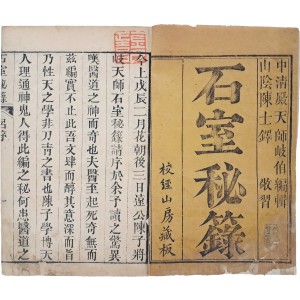 中清嚴天師岐伯編輯
山陰陳士鐸敬習
石室秘籙
校經山房藏板
今上戊辰二月花朝後三日遠公陳子將
岐天師石室秘籙請序於余予讀之驚異
嘆醫道之神而奇也夫醫至起死奇無而
茲編實不止此吾文肆而醇其意深而旨
乃性天之學非刀圭之書也陳子學博天
人理通神鬼人得此編之秘何患醫道之
石室秘籙